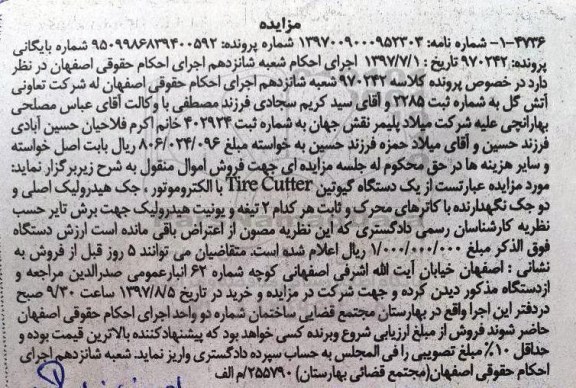 مزایده
۱-۴۷۳۶- شماره نامه: ۱۳۹۷۰۰۹۰۰۰۹۵۲۳۰۳ شماره پرونده: ۹۵۰۹۹۸۶۸۳۹۴۰۰۵۹۲ شماره بایگانی
پرونده: ۹۷۰۲۴۲ تاریخ : ۱۳۹۷/۷/۱ اجرای احکام شعبه شانزدهم اجرای احکام حقوقی اصفهان در نظر
دارد در خصوص پرونده کلاسه ۹۷۰۲۴۲ شعبه شانزدهم اجرای احکام حقوقی اصفهان له شرکت تعاونی
آتش گل به شماره ثبت ۲۲۸۵ و آقای سید کریم سجادی فرزند مصطفی با وکالت آقای عباس مصلحی
بهارانچی علیه شرکت میلاد پلیمر نقش جهان به شماره ثبت ۴۰۲۹۲۴ خانم اکرم فلاحیان حسین آبادی
فرزند حسین و آقای میلاد حمزه فرزند حسین به خواسته مبلغ ۸۰۶/۰۲۴/۰۹۶ ریال بابت اصل خواسته
و سایر هزینه ها در حق محکوم له جلسه مزایده ای جهت فروش اموال منقول به شرح زیربرگزار نماید:
مورد مزایده عبارتست از یک دستگاه گیوتین Tire Cutter با الکتروموتور ، جک هیدرولیک اصلی و
دو جک نگهدارنده با کاترهای محرک و ثابت هر کدام ۲ تیغه و یونیت هیدرولیک جهت برش تایر حسب
نظریه کارشناسان رسمی دادگستری که این نظریه مصون از اعتراض باقی مانده است ارزش دستگاه
فوق الذکر مبلغ ۱/۰۰۰/۰۰۰/۰۰۰ ریال اعلام شده است. متقاضیان می توانند ۵ روز قبل از فروش به
نشانی : اصفهان خیابان آیت الله اشرفی اصفهانی کوچه شماره ۶۲ انبارعمومی صدرالدین مراجعه و
ازدستگاه مذکور دیدن کرده و جهت شرکت در مزایده و خرید در تاریخ ۱۳۹۷/۸/۵ ساعت ۹/۳۰ صبح
دردفتر این اجرا واقع در بهارستان مجتمع قضایی ساختمان شماره دو واحد اجرای احکام حقوقی اصفهان
حاضر شوند فروش از مبلغ ارزیابی شروع وبرنده کسی خواهد بود که پیشنهادکننده بالاترین قیمت بوده و
حداقل ۱۰٪ مبلغ تصویبی را فی المجلس به حساب سپرده دادگستری واریز نماید. شعبه شانزدهم اجرای
احکام حقوقی اصفهان(مجتمع قضائی بهارستان) ۲۵۵۷۹۰/م الف